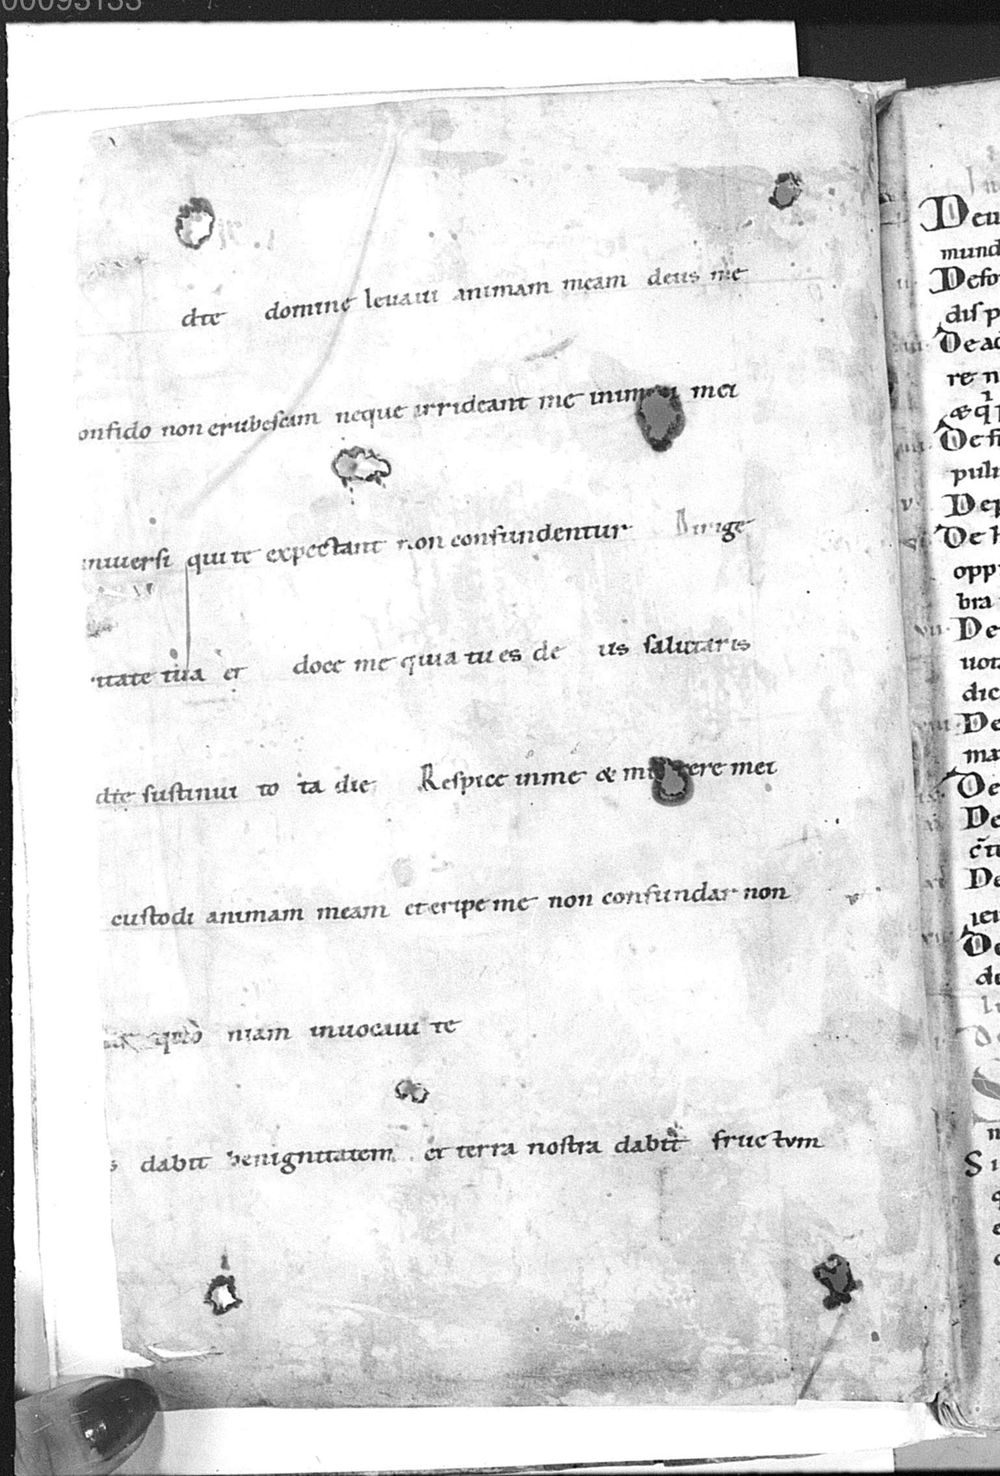 00093133
dte domine levavi animam meam deus me
onfido non erubescam neque irrideant me inimici mei
niversi qui te expectant non confundentur Dirige
itate tua et doce me quia tu es de us salutaris
die sustinui to ta die Respice in me & miserere mei
custodi animam meam et eripe me non confundar non
quo niam invocavi te
s dabit benignitatem et terra nostra dabit fructum
Deu
mund
Defo
disp
De ac
re n
De fi
puli
v Dep
De h
opp
bra
vii De
uot
dic
De
ma
De
De
De
De
de